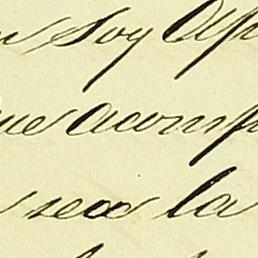 soy Ap
ue acomp
sea la